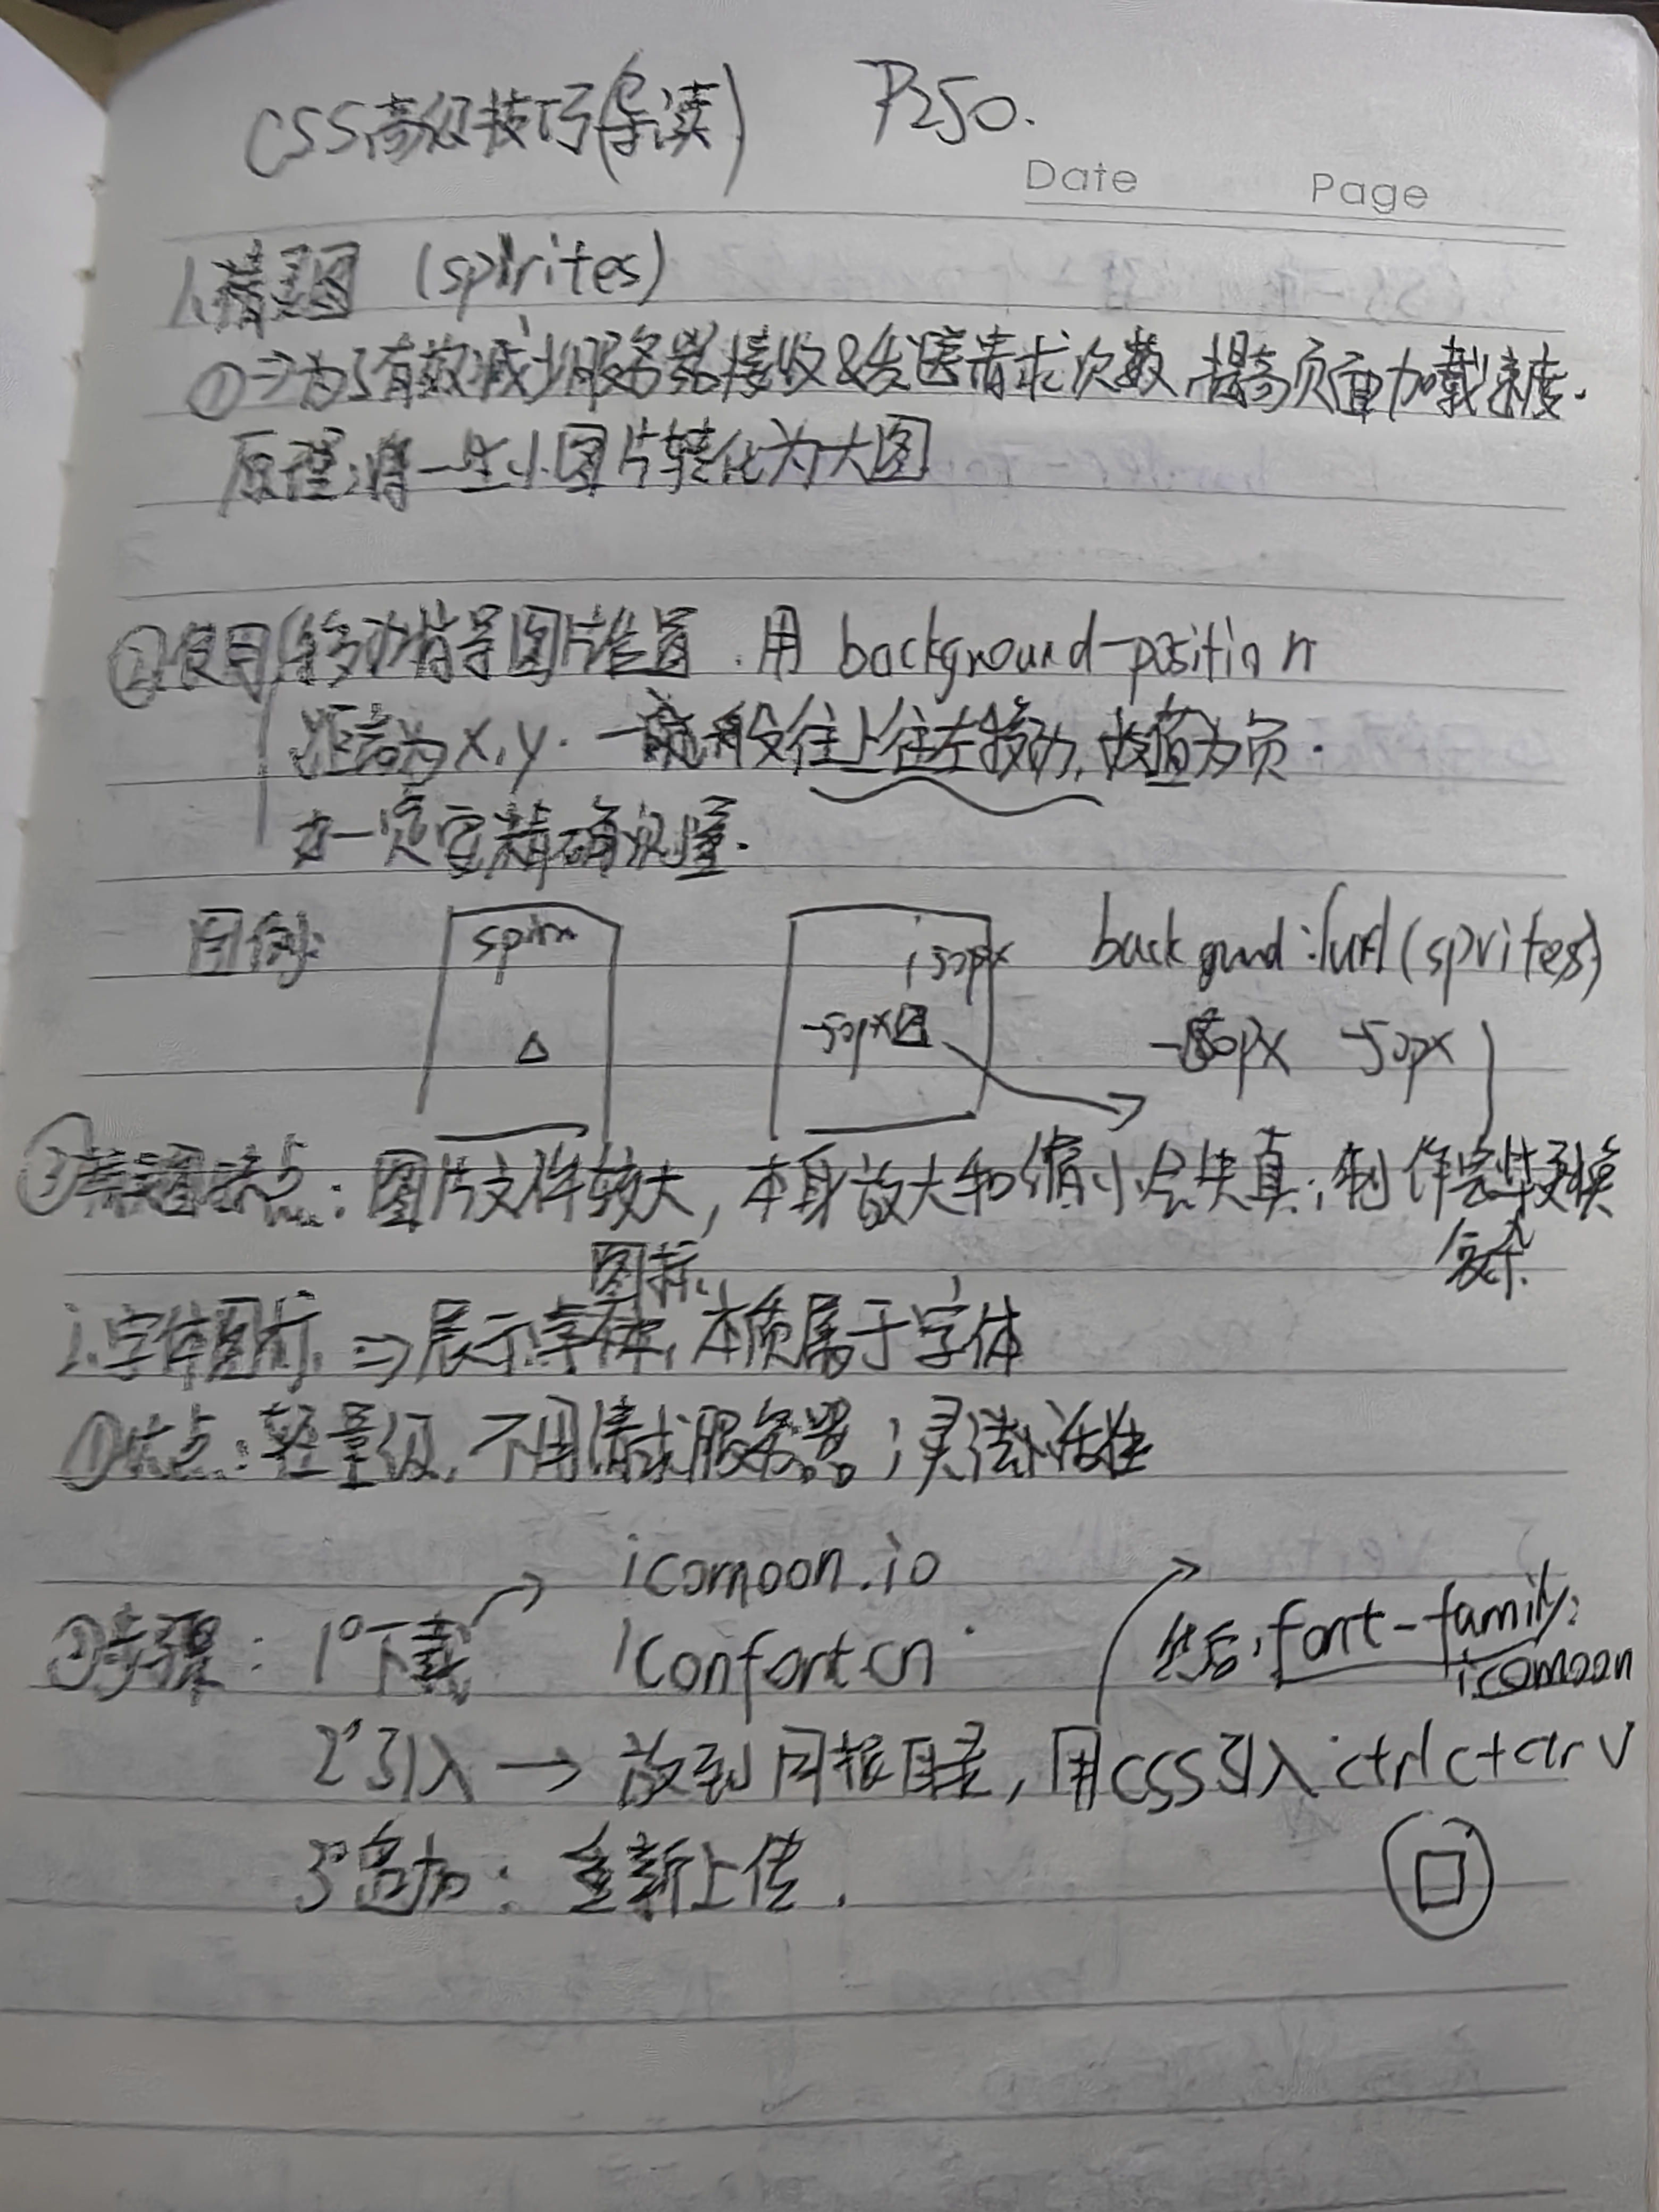 CSS高级技巧(导读) P250.
Date Page
1.精灵图 (spirites)
①⇒为了有效减少服务器接收&发送请求次数,提高页面加载速度.
原理:将一些小图片转化为大图
②使用 移动背景图片位置.用 background-position
距离为x,y. 一般往上往左移动,故值为负.
一定精确测量.
图例: spirit 150px background:url(sprites)
△ -50px -50px
③精灵图缺点:图片文件较大,本身放大和缩小会失真;制作完毕更换
复杂.
图标.
2.字体图标 ⇒展示字体,本质属于字体
①优点:轻量级,不用请求服务器;灵活性
icomoon.io
②步骤: 1°下载 iconfont.cn 然后:font-family:
icomoon
2°引入→放到同根目录,用css引入ctrlc+ctrv
3°追加: 重新上传.